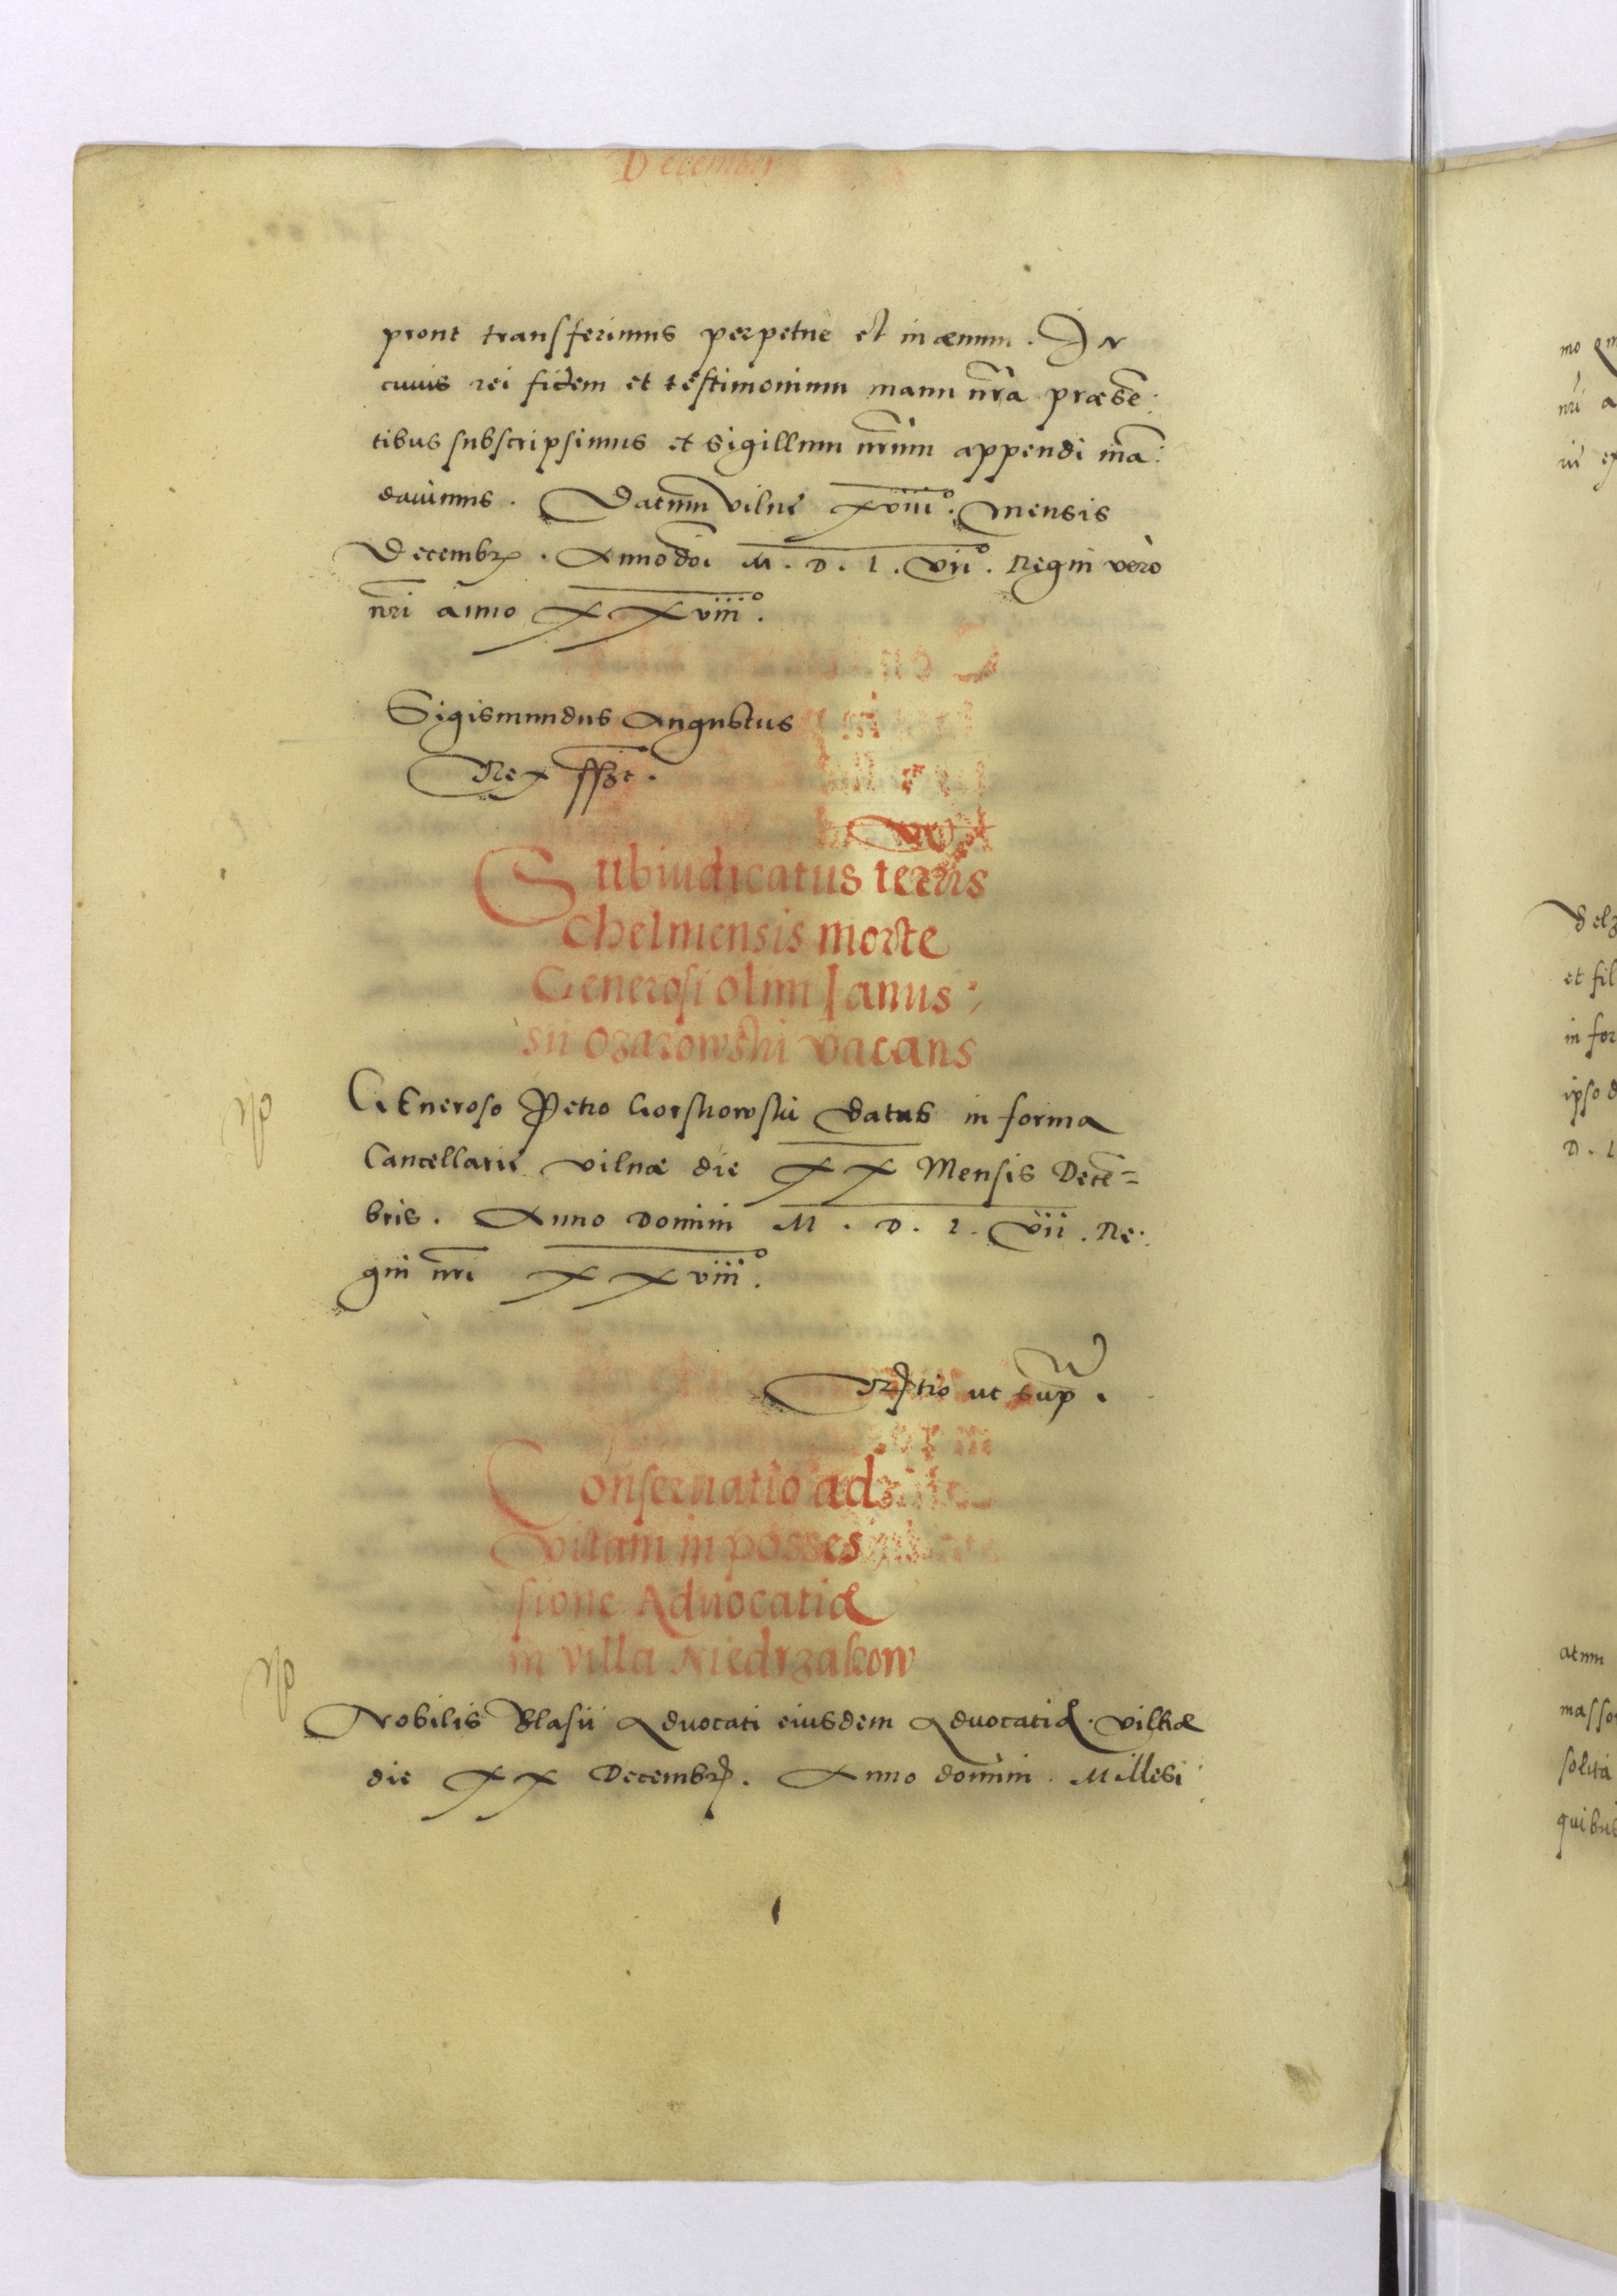 December
prout transferimus perpetuè et in æuum. In
cuius rei fidem et testimonium manu nr̃a præsẽ:
tibus subscripsimus et sigillum nr̃um appendi mã:
dauimus. Datum Vilnę xviii°. mensis
Decembr̃. Anno doī M. D. L. vii°. Regni verò
nr̃i anno xxviii°.
Sigismundus Augustus
Rex sszt.
Subiudicatus terris
Chelmensis morte
Generosi olim Ianus:
sii Ozarowski vacans
GEneroso Petro Gorskowski datus in forma
Cancellarię Vilnæ die XX Mensis Decẽ=
bris. Anno Domini M. D. L. vii. Re:
gni nr̃i xxviii°.
Rl̃tio ut sup̃.
Conseruatio ad
vitam in posses
sione Aduocatiæ
in villa Niedrzakow
Nobilis Blasii Aduocati eiusdem Aduocatię. Vilnæ
die XX Decembr̃. Anno domini Millesi: